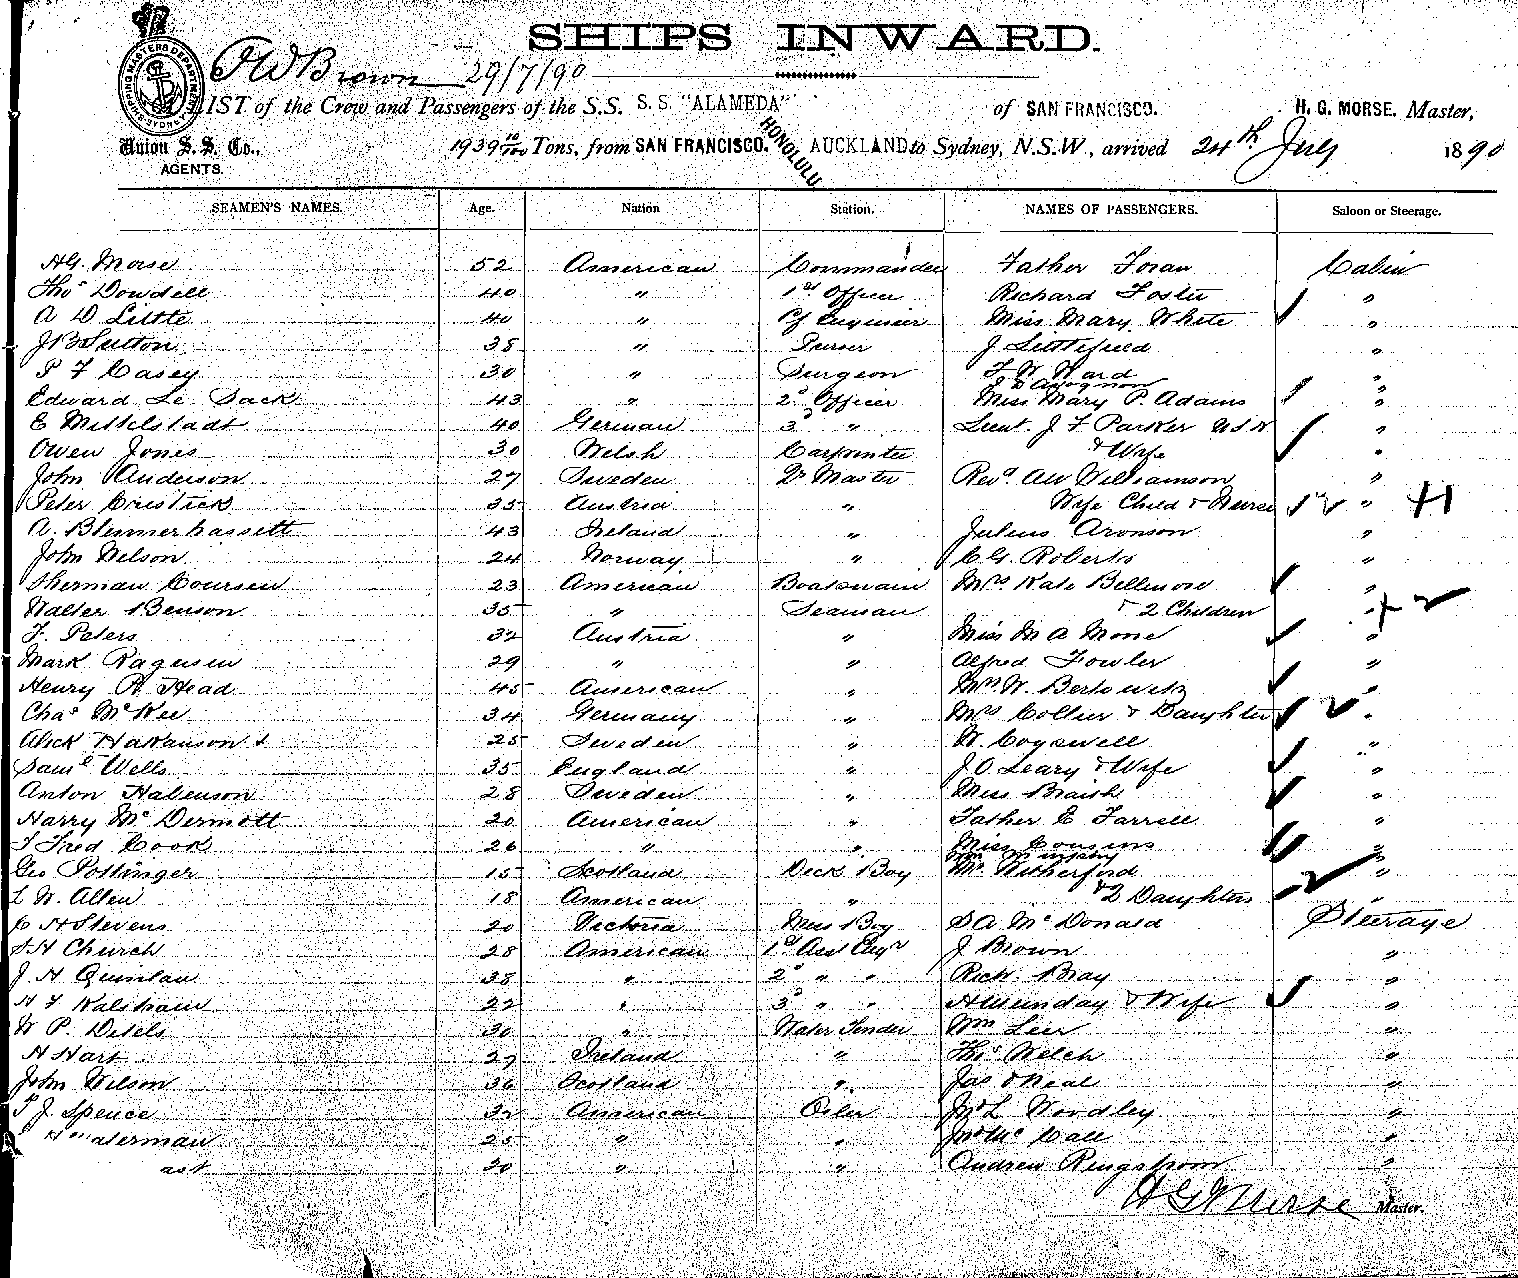 SHIPS INWARD.
SHIPPING MASTERS DEPARTMENT SYDNEY
J W Brown 29/7/90
LIST of the Crew and Passengers of the S.S. S.S. "ALAMEDA" of SAN FRANCISCO. H. G. MORSE, Master,
Union S. S. Co., AGENTS.
1939 10/100 Tons, from SAN FRANCISCO. HONOLULU AUCKLAND to Sydney, N.S.W., arrived 24th July 1890
SEAMEN'S NAMES. Age. Nation Station. NAMES OF PASSENGERS. Saloon or Steerage.
HG. Morse 52 American Commander Father Foran Cabin
Thos Dowdell 40 " 1st Officer Richard Foster "
A D Little 40 " Cf Engineer Miss Mary White "
J B Sutton 38 " Purser J. Littlefield "
P F Casey 30 " Surgeon F. W. Ward "
Edward Le Sack 43 " 2d Officer Miss Mary P. Adams "
E Mittelstadt 40 German 3d " Lieut. J F Parker USN "
Owen Jones 30 Welsh Carpenter & Wife "
John Anderson 27 Sweden Qr Master Revd AW Williamson "
Peter Cristick 35 Austria " Wife Child & Nurse 12 " H
A. Blennerhassett 43 Ireland " Julius Aronson "
John Nelson 24 Norway " C G. Roberts "
Sherman Coursen 23 American Boatswain Mrs Kate Bellmore "
Walter Benson 35 " Seaman & 2 Children " + 2
F. Peters 32 Austria " Miss M A Mone "
Mark Ragusin 29 " " Alfred Fowler "
Henry R Head 45 American " Mrs. W. Bertowitz "
Chas McKee 34 Germany " Mrs Collier & Daughter 2 "
Alick Hakanson 25 Sweden " W. Cogswell "
Saml Wells 35 England " J. O. Leary & Wife "
Anton Halvenson 28 Sweden " Miss Braish "
Harry McDermott 20 American " Father E Farrell "
Fred Cook 26 " " Miss Cousins "
Geo Pottinger 15 Scotland Deck Boy Mr. Rutherford "
L W. Allen 18 American " & 2 Daughters 2 "
C H Stevens 20 Victoria Mess Boy D A McDonald Steerage
S H Church 28 American 1st Asst Engr J Brown "
J. H Quinlan 38 " 2d " " Rich. Bray "
H F Walstrom 22 " 3d " " A Munday & Wife "
W P. Detels 30 " Water Tender Wm Leer "
H Hart 27 Ireland " Thos Welch "
John Wilson 36 Scotland " Jas O Neal "
P J. Spence 32 American Oiler Jno L Woodley "
H Waterman 25 " " Jno Mc Call "
20 " " Andrew Ringstrom "
H G Morse Master.